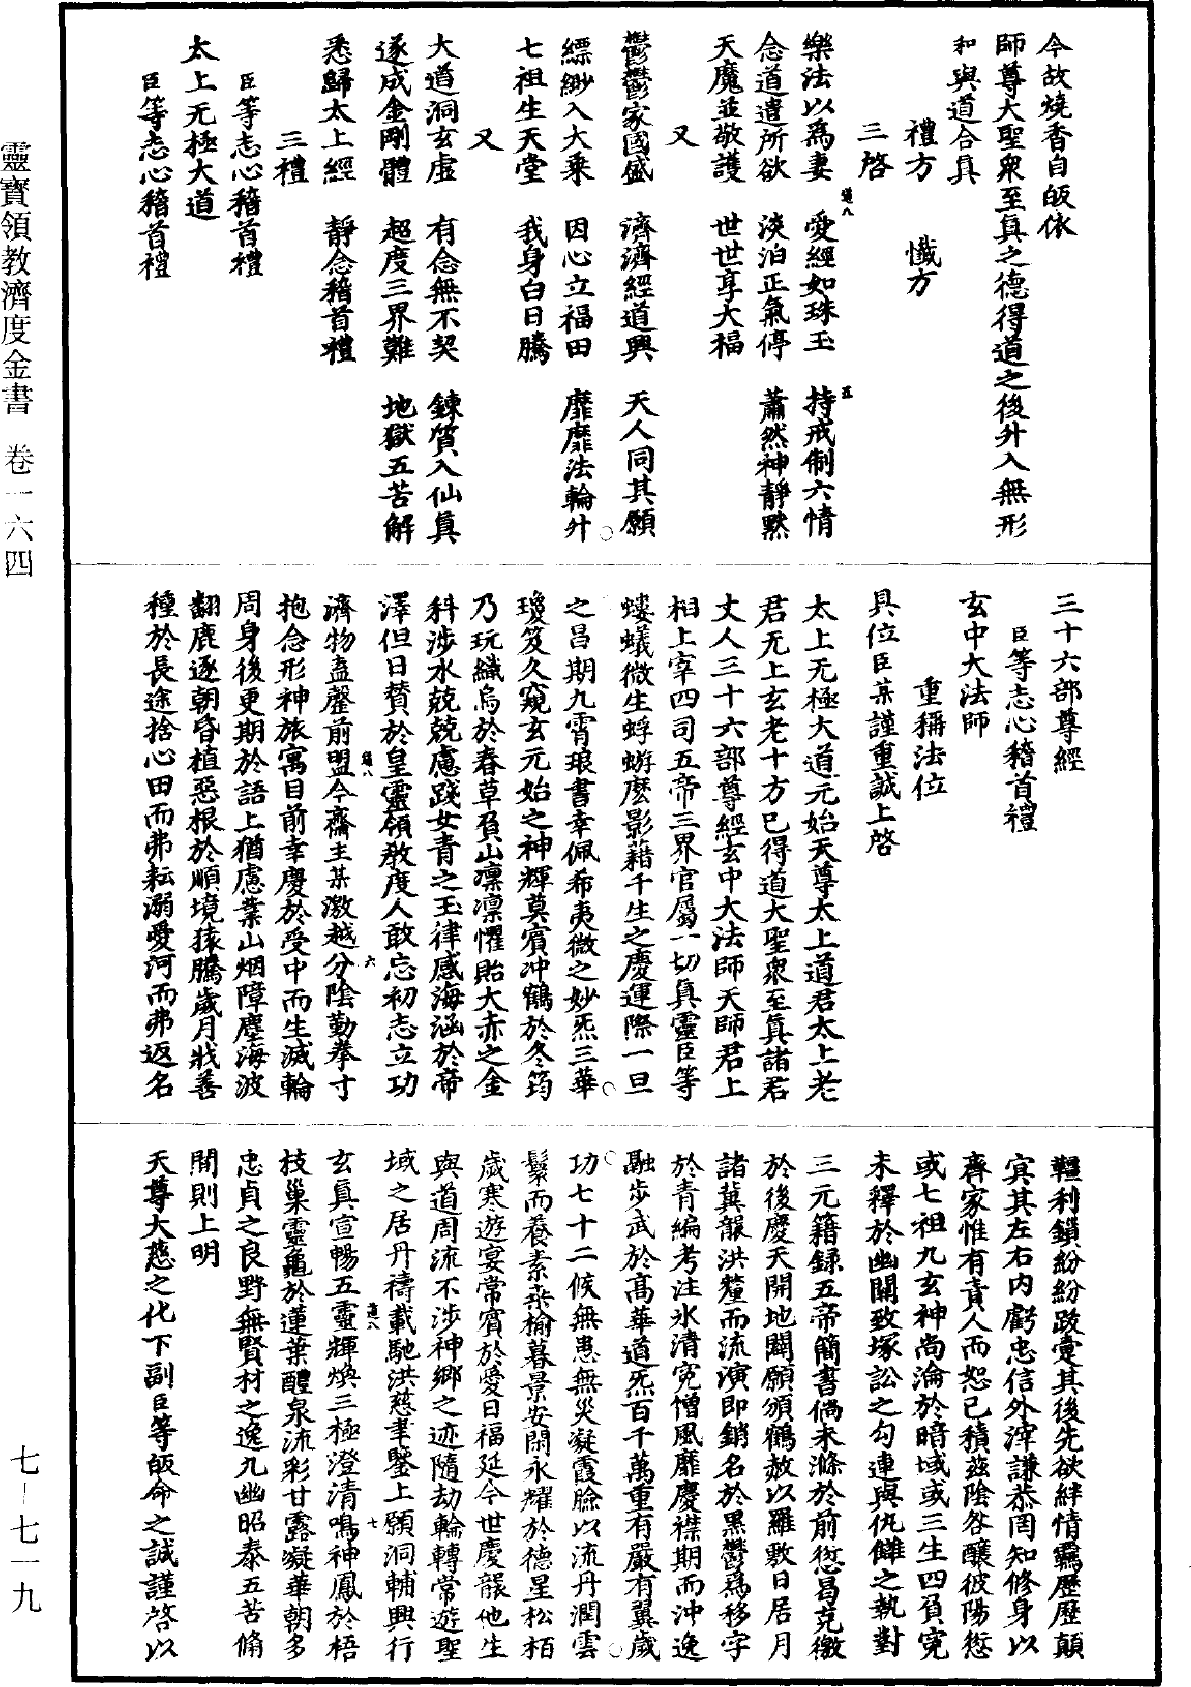 今故燒香自皈依
師尊大聖衆至真之德得道之後升入無形
和與道合真
禮方　懺方
三啓
樂法以爲妻　愛經如珠玉　持戒制六情
念道遣所欲　淡泊正氣停　蕭然神靜默
天魔並敬護　世世享大福
又
鬱鬱家國盛　濟濟經道興　天人同其願
縹緲入大乘　因心立福田　靡靡法輪升
七祖生天堂　我身白日騰
又
大道洞玄虛　有念無不契　鍊質入仙真
遂成金剛體　超度三界難　地獄五苦解
悉歸太上經　靜念稽首禮
三禮
臣等志心稽首禮
太上无極大道
臣等志心稽首禮
三十六部尊經
臣等志心稽首禮
玄中大法師
重稱法位
具位臣某謹重誠上啓
太上无極大道元始天尊太上道君太上老
君无上玄老十方已得道大聖衆至真諸君
丈人三十六部尊經玄中大法師天師君上
相上宰四司五帝三界官屬一切真靈臣等
螻蟻微生蜉蝣麽影藉千生之慶運際一旦
之昌期九霄琅書幸佩希夷微之妙炁三華
瓊笈久窺玄元始之神輝莫賓冲鶴於冬筠
乃玩織烏於春草負山凛凛懼貽大赤之金
科涉水兢兢慮踐女青之玉律感海涵於帝
澤但日贊於皇靈領教度人敢忘初志立功
濟物盍罄前盟今齋主某激越分陰勤拳寸
抱念形神旅寓目前幸慶於受中而生滅輪
周身後更期於語上猶慮業山烟障塵海波
翻鹿逐朝昏植惡根於順境猿騰歲月戕善
種於長途捨心田而弗耘溺愛河而弗返名
韁利鎖紛紛跋疐其後先欲絆情羈歷歷顛
㝠其左右内虧忠信外滓謙恭罔知修身以
齊家惟有責人而恕己積玆陰咎釀彼陽愆
或七祖九玄神尚淪於暗域或三生四負寃
未釋於幽關致塚訟之勾連與仇讎之執對
三元籍録五帝簡書倘未滌於前愆曷克徼
於後慶天開地闢願頒鶴赦以羅敷日居月
諸冀龍洪釐而流演即銷名於黑鬱爲移字
於青編考注氷清寃憎風靡慶襟期而沖逸
融步武於高華道炁百千萬重有嚴有翼歲
功七十二候無患無災凝霞臉以流丹潤雲
鬟而養素桒榆暮景安閑永耀於德星松栢
歲寒遊宴常賓於愛日福延今世慶襲他生
與道周流不涉神鄉之迹隨劫輪轉常遊聖
域之居丹禱載馳洪慈聿鑒上願洞輔興行
玄真宣暢五靈輝煥三極澄清鳴神鳳於梧
枝巢靈龜於蓮葉醴泉流彩甘露凝華朝多
忠貞之良野無賢材之逸九幽昭泰五苦脩
開則上明
天尊大慈之化下副臣等皈命之誠謹啓以
靈寶領教濟度金書　卷一六四
七-七一九